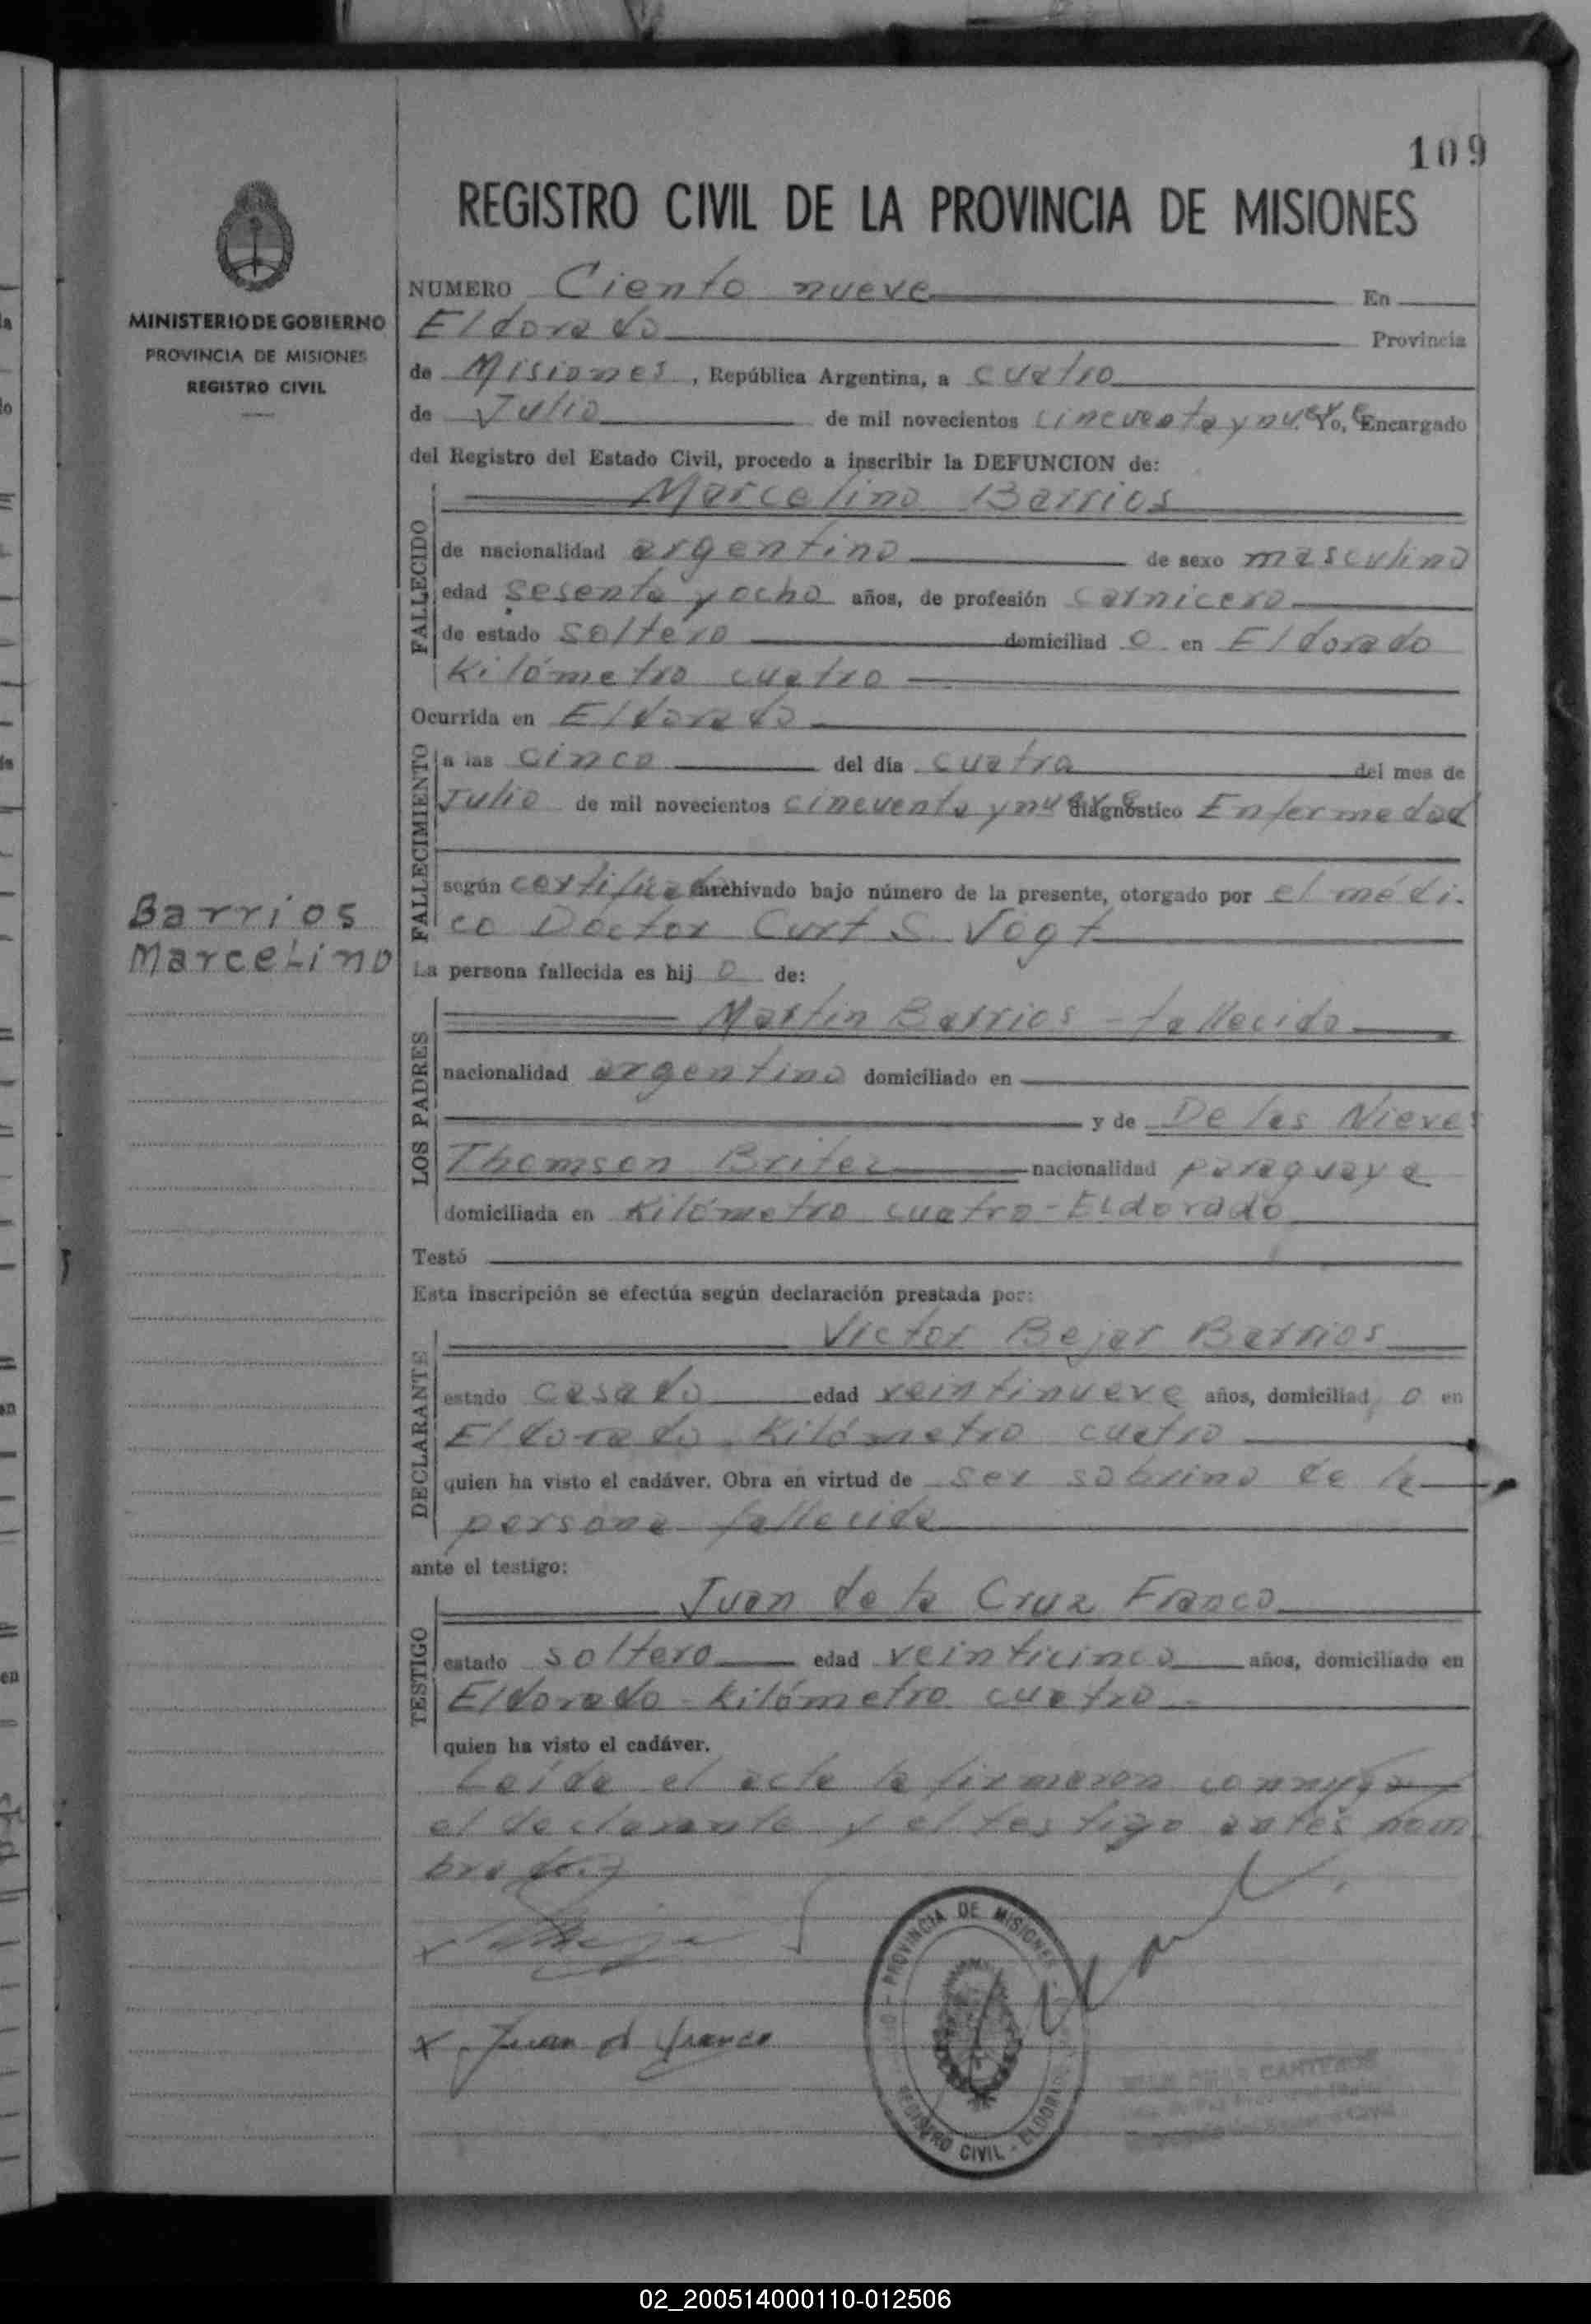 109
REGISTRO CIVIL DE LA PROVINCIA DE MISIONES
MINISTERIO DE GOBIERNO
PROVINCIA DE MISIONES
REGISTRO CIVIL
NUMERO Ciento nueve En
Eldorado Provincia
de Misiones, República Argentina, a cuatro
de Julio de mil novecientos cincuenta y nueve Yo, Encargado
del Registro del Estado Civil, procedo a inscribir la DEFUNCION de:
Marcelino Barrios
FALLECIDO
de nacionalidad argentino de sexo masculino
edad sesenta y ocho años, de profesión carnicero
de estado soltero domiciliad o en Eldorado
Kilómetro cuatro
Ocurrida en Eldorado
FALLECIMIENTO
a las cinco del día cuatro del mes de
Julio de mil novecientos cincuenta y nueve diagnóstico Enfermedad
según certificado archivado bajo número de la presente, otorgado por el médi-
co Doctor Curt S. Vogt
Barrios
Marcelino
La persona fallecida es hij o de:
LOS PADRES
Martin Barrios - fallecido
nacionalidad argentino domiciliado en
y de De las Nieves
Thomson Britez nacionalidad paraguaya
domiciliada en Kilómetro cuatro - Eldorado
Testó
Esta inscripción se efectúa según declaración prestada por:
DECLARANTE
Victor Bejar Barrios
estado casado edad veintinueve años, domiciliad o en
Eldorado - Kilómetro cuatro
quien ha visto el cadáver. Obra en virtud de ser sobrino de la
persona fallecida
ante el testigo:
TESTIGO
Juan de la Cruz Franco
estado soltero edad veinticinco años, domiciliado en
Eldorado - Kilómetro cuatro
quien ha visto el cadáver.
Leída el acta la firmaron conmigo
el declarante y el testigo antes nom
brados
x
x Juan d franco
PROVINCIA DE MISIONES
REGISTRO CIVIL - ELDORADO
CANTEROS
02_200514000110-012506